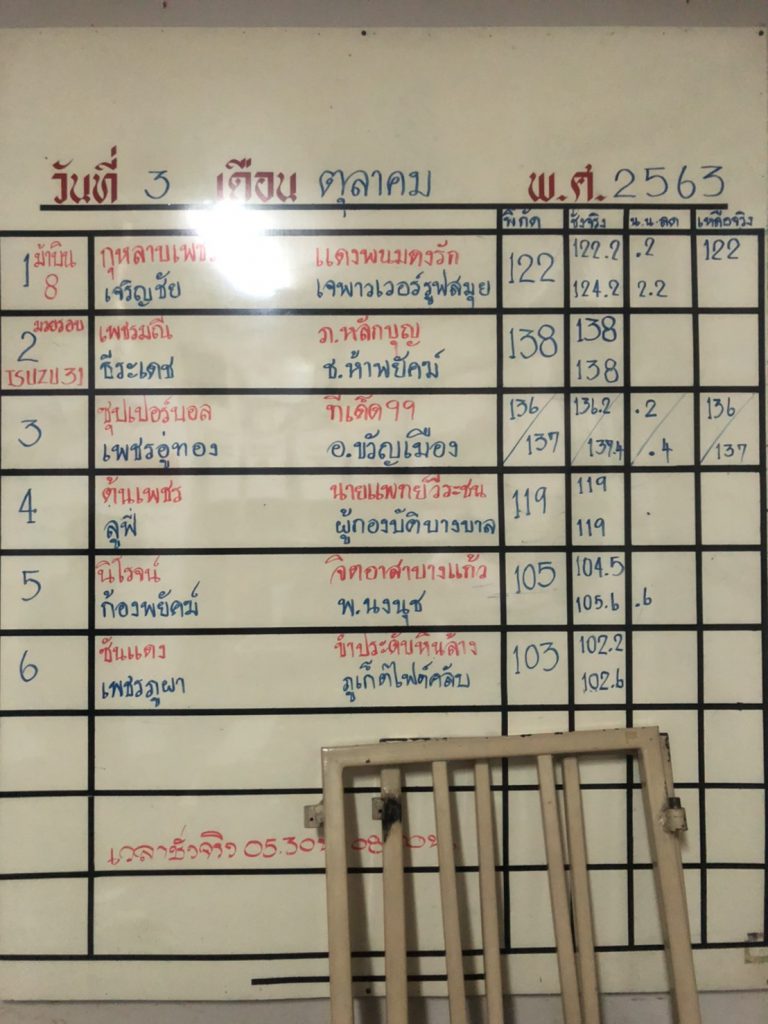 วันที่ 3 เดือน ตุลาคม พ.ศ. 2563
พิกัด ชั่งจริง น.น.ลด เหลือจริง
1 ม้าบิน 8 กุหลาบเพชร แดงพนมดงรัก 122 122.2 .2 122
เจริญชัย เจพาวเวอร์รูฟสมุย 124.2 2.2
2 มวยรอบ ISUZU 31 เพชรมณี ภ.หลักบุญ 138 138
ธีระเดช ช.ห้าพยัคฆ์ 138
3 ซุปเปอร์บอล ทีเด็ด99 136 136.2 .2 136
เพชรอู่ทอง อ.ขวัญเมือง 137 137.4 .4 137
4 ต้นเพชร นายแพทย์วีระชน 119 119
ลูฟี่ ผู้กองบัติบางบาล 119
5 นิโรจน์ จิตอาสาบางแก้ว 105 104.5
ก้องพยัคฆ์ พ.นงนุช 105.6 .6
6 ซันแดง ขำประดับหินล้าง 103 102.2
เพชรภูผา ภูเก็ตไฟต์คลับ 102.6
เวลาชั่งจริง 05.30